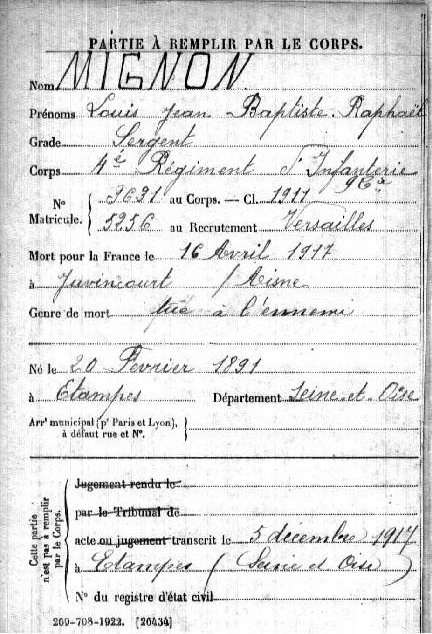 PARTIE À REMPLIR PAR LE CORPS.
Nom MIGNON
Prénoms Louis Jean Baptiste Raphaël
Grade Sergent
Corps 4e Régiment d'Infanterie
9e Cie
N° Matricule. 3631 au Corps. — Cl. 1911
5256 au Recrutement Versailles
Mort pour la France le 16 Avril 1917
à Juvincourt (Aisne
Genre de mort tué à l'ennemi
Né le 20 Février 1891
à Etampes Département Seine-et-Oise
Arrt municipal (pr Paris et Lyon),
à défaut rue et N°.
Cette partie n'est pas à remplir par le Corps.
Jugement rendu le
par le Tribunal de
acte ou jugement transcrit le 5 décembre 1917
à Etampes (Seine et Oise)
N° du registre d'état civil
269-708-1922. [26434]